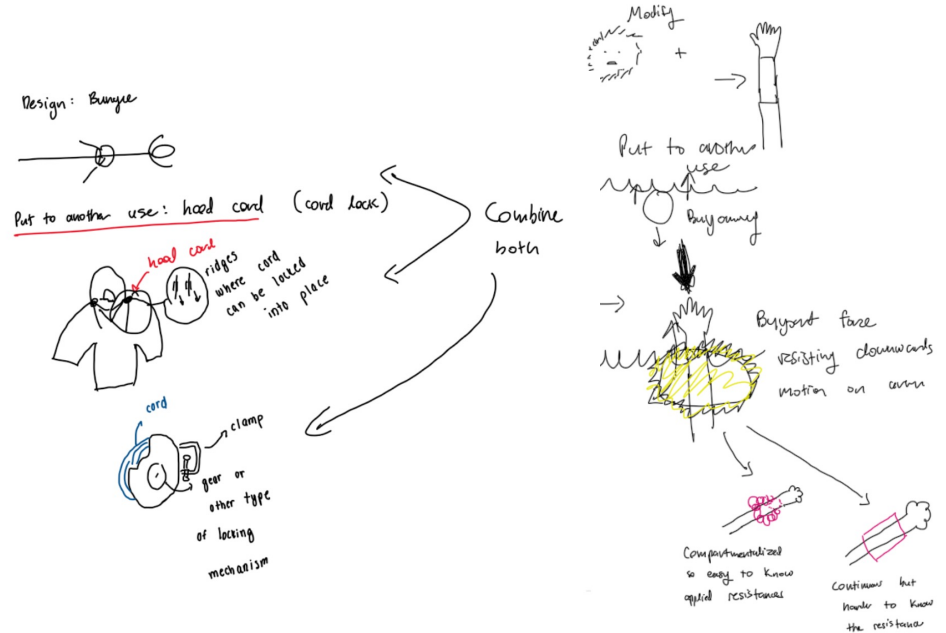 Design: Bungee
Put to another use: hood cord (cord lock)
hood cord
ridges
where cord
can be locked
into place
Combine
both
cord
clamp
gear or
other type
of locking
mechanism
Modify
+
Put to another
use
Buoyancy
Buoyant force
resisting downwards
motion on arm
Compartmentalized
so easy to know
applied resistances
Continuous but
harder to know
the resistance